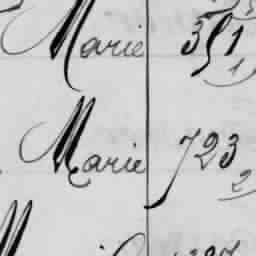 Marie 351
1
Marie 723
2